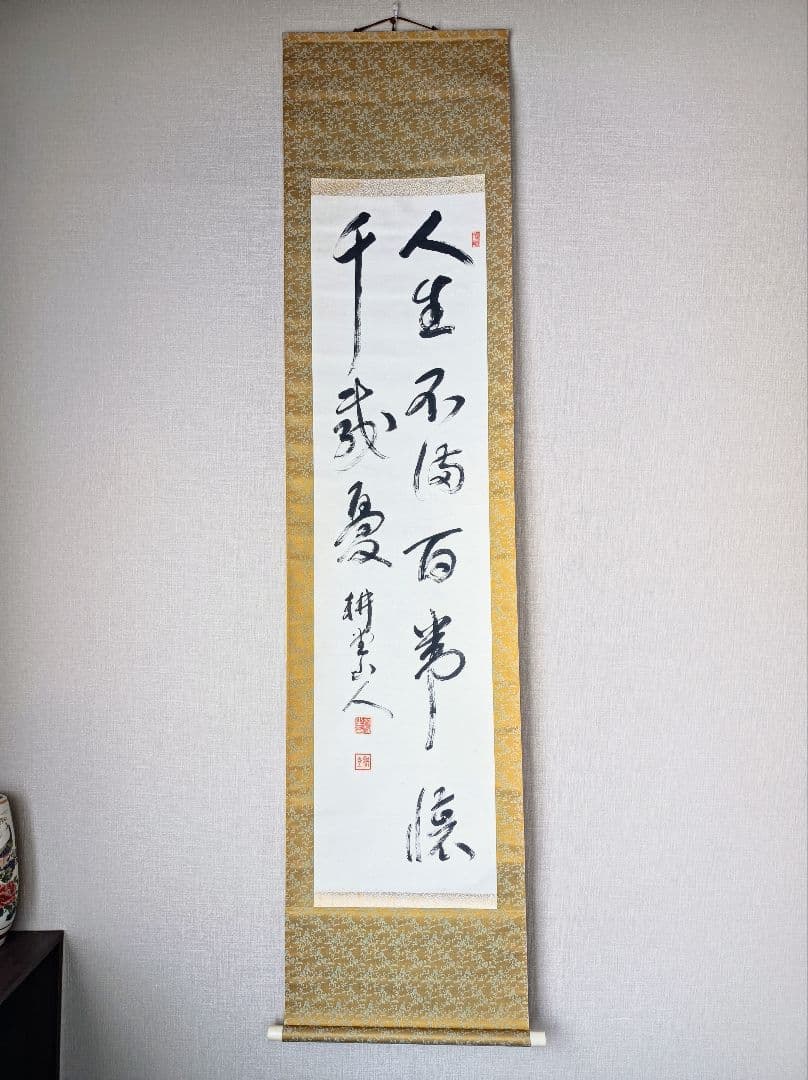 人生不満百常懐
千載憂
耕堂山人